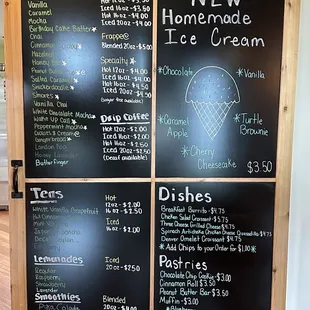 Vanilla
Caramel
Mocha
Birthday Cake Batter
Chai
Cinnamon
Hazelnut
Honey
Peanut Butter
Salted Caramel
Smores
Vanilla Chai
White Chocolate Mocha
Wake Up Call
Peppermint Mocha
Cookies & Cream
Gingerbread
London Fog
Honey
Butter Finger
Hot 12oz - $3.00
Iced 16oz - $3.50
Hot 16oz - $4.00
Iced 20oz - $4.00
Frappe
Blended 20oz - $5.00
Specialty
Hot 12oz - $4.00
Iced 16oz - $4.00
Hot 16oz - $4.50
Iced 20oz - $4.50
(Sugar free available)
Drip Coffee
Hot 12oz - $2.00
Iced 16oz - $2.00
Hot 16oz - $2.50
Iced 20oz - $2.50
(Decaf available)
NEW
Homemade
Ice Cream
*Chocolate
*Vanilla
*Caramel
Apple
*Turtle
Brownie
*Cherry
Cheesecake
$3.50
Teas
White Vanilla Grapefruit
Hot
12oz - $2.00
16oz - $2.50
Iced
16oz - $2.00
Lemonades
Regular
Raspberry
Strawberry
Lavender
Iced
20oz - $2.50
Smoothies
Pina Colada
Blended
20oz - $4.00
Dishes
Breakfast Burrito - $4.75
Chicken Salad Croissant - $5.75
Three Cheese Grilled Cheese - $4.75
Spinach Artichoke Chicken Grilled Cheese - $5.75
Denver Omelet Croissant - $4.75
* Add Chips to your Order for $1.00 *
Pastries
Chocolate Chip Cookie - $3.00
Cinnamon Roll - $3.50
Peanut Butter Bar - $3.50
Muffin - $3.00
*Blueberry